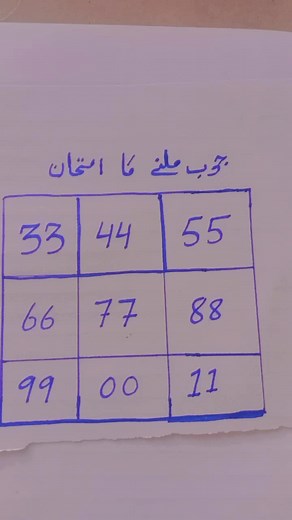 جوب ملنے کا امتحان
33 44 55
66 77 88
99 00 11